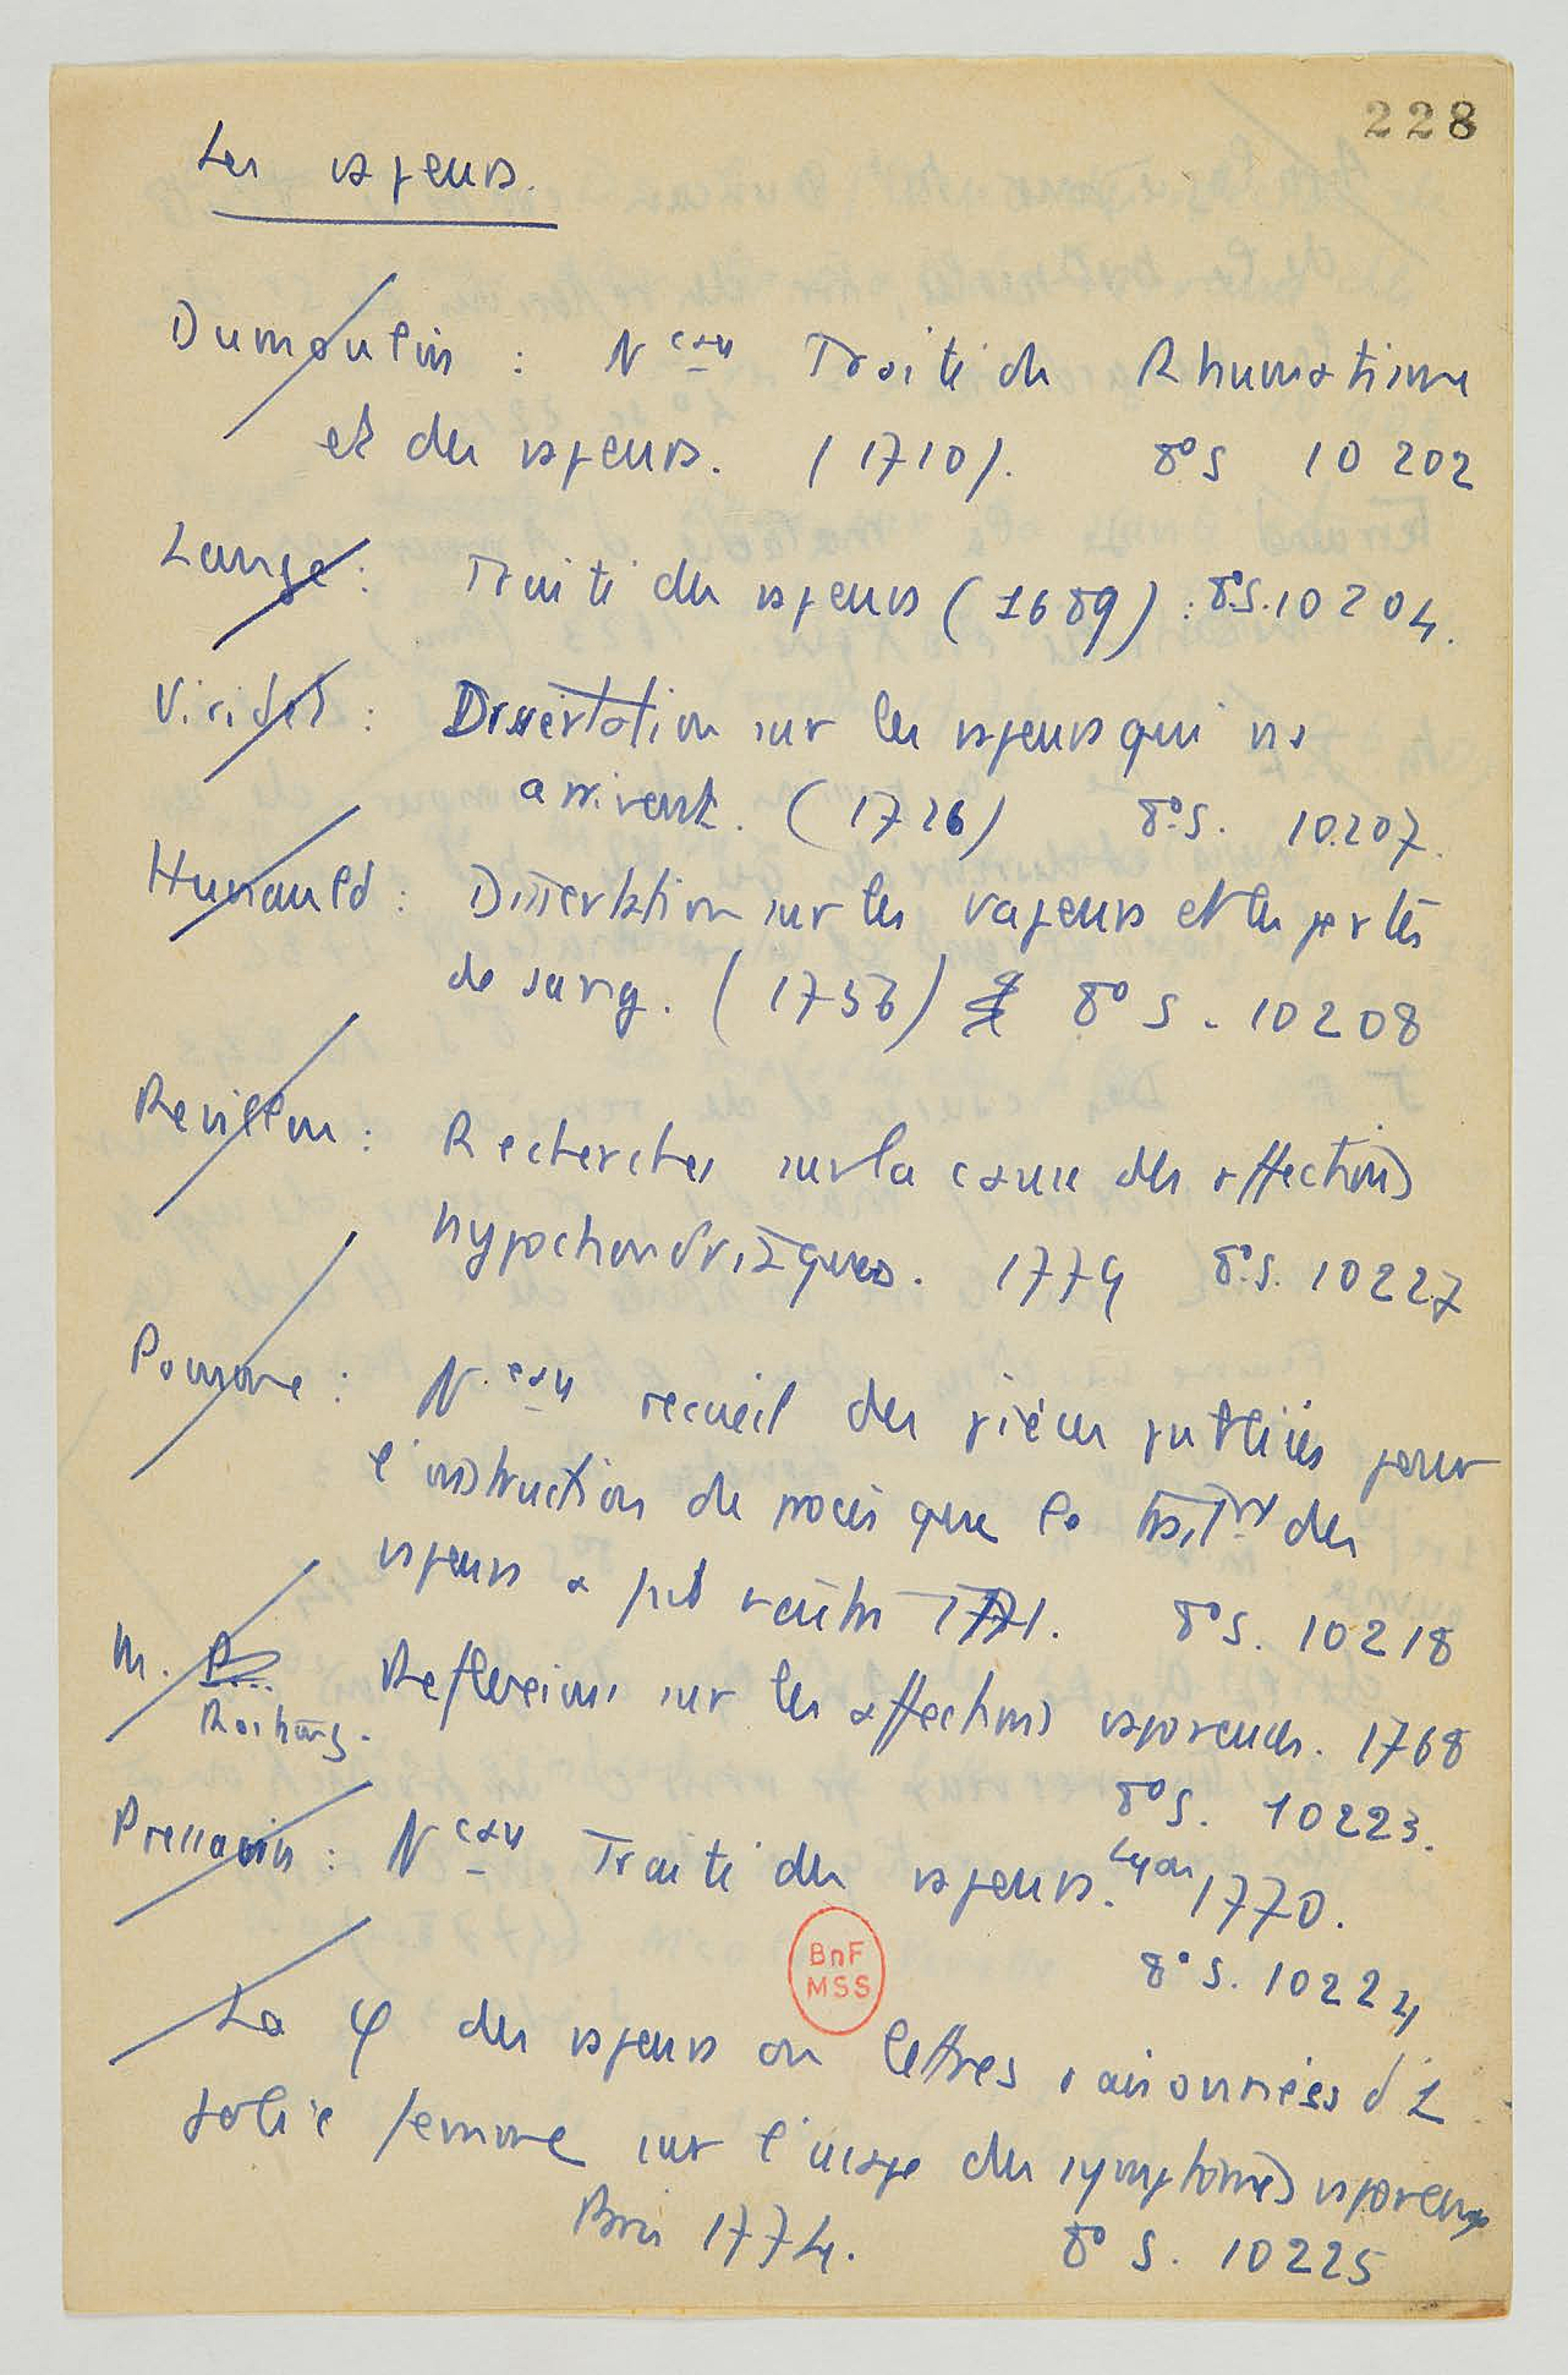 228
Les vapeurs.
Dumoulin : N eau Traité du Rhumatisme
et des vapeurs. (1710). 8° S 10 202
Lange : Traité des vapeurs (1689) : 8°S. 10 204.
Viridet : Dissertation sur les vapeurs qui ns
arrivent. (1726) 8°.S. 10.207.
Hunauld : Dissertation sur les vapeurs et les pertes
de sang. (1756) 8° S. 10208
Revillon : Recherches sur la cause des affections
hypochondriaques. 1779 8°.S. 10227
Pomme : N. eau recueil des pièces publiées pour
l'instruction du procès que le des
vapeurs a fait naître 1771. 8°S. 10218
M. Rostaing. Reflexions sur les affections vaporeuses. 1768
8°S. 10223.
Pressavin : N eau Traité des vapeurs. Lyon 1770.
8° S. 10224
La φ des vapeurs ou lettres raisonnées d'1
jolie femme sur l'usage des symptômes vaporeux
Paris 1774. 8° S. 10225
BnF
MSS